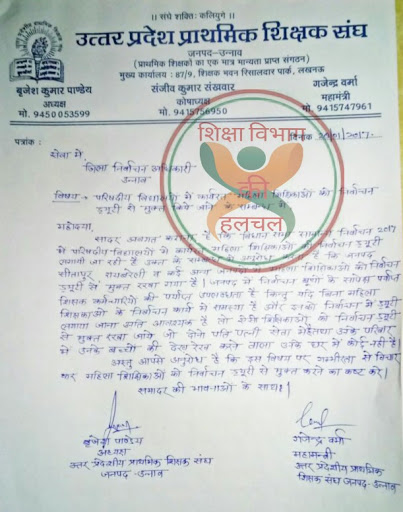 ।। संघे शक्तिः कलियुगे ।।
उत्तर प्रदेश प्राथमिक शिक्षक संघ
जनपद-उन्नाव
(प्राथमिक शिक्षकों का एक मात्र मान्यता प्राप्त संगठन)
मुख्य कार्यालय : 87/9, शिक्षक भवन रिसालदार पार्क, लखनऊ
बृजेश कुमार पाण्डेय
अध्यक्ष
मो. 9450053599
संजीव कुमार संखवार
कोषाध्यक्ष
मो. 9415756950
गजेन्द्र वर्मा
महामंत्री
मो. 9415747961
पत्रांक :
दिनांक
शिक्षा विभाग
की
हलचल
सेवा में
जिला निर्वाचन अधिकारी
उन्नाव
विषय - परिषदीय विद्यालयों में कार्यरत महिला शिक्षिकाओं को निर्वाचन
ड्यूटी से मुक्त किये जाने के सम्बन्ध में
महोदया,
सादर अवगत कराना है कि विधान सभा सामान्य निर्वाचन 2017
में परिषदीय विद्यालयों में कार्यरत महिला शिक्षिकाओं की निर्वाचन ड्यूटी
लगायी जा रही है उक्त के सम्बन्ध में अनुरोध है कि जनपद
सीतापुर रायबरेली व कई अन्य जनपदों में महिला शिक्षिकाओं को निर्वाचन
ड्यूटी से मुक्त रखा गया है। जनपद में निर्वाचन के सापेक्ष पर्याप्त
शिक्षक कर्मचारियों की पर्याप्त उपलब्धता है किन्तु यदि बिना महिला
शिक्षिकाओं के निर्वाचन कार्य में समस्या है और इनको निर्वाचन में ड्यूटी
लगाया जाना अति आवश्यक है तो ऐसी शिक्षिकाओं को निर्वाचन ड्यूटी
से मुक्त रखा जाये जो दोनों पति पत्नी सेवा में है तथा उनके परिवार
में उनके बच्चों की देख रेख करने वाला उनके घर में कोई नहीं है।
अस्तु आपसे अनुरोध है कि इस विषय पर गम्भीरता से विचार
कर महिला शिक्षिकाओं को निर्वाचन ड्यूटी से मुक्त करने का कष्ट करें।
समादर की भावनाओं के साथ।
बृजेश पाण्डेय
अध्यक्ष
उत्तर प्रदेशीय प्राथमिक शिक्षक संघ
जनपद-उन्नाव
गजेन्द्र वर्मा
महामन्त्री
उत्तर प्रदेशीय प्राथमिक
शिक्षक संघ जनपद-उन्नाव